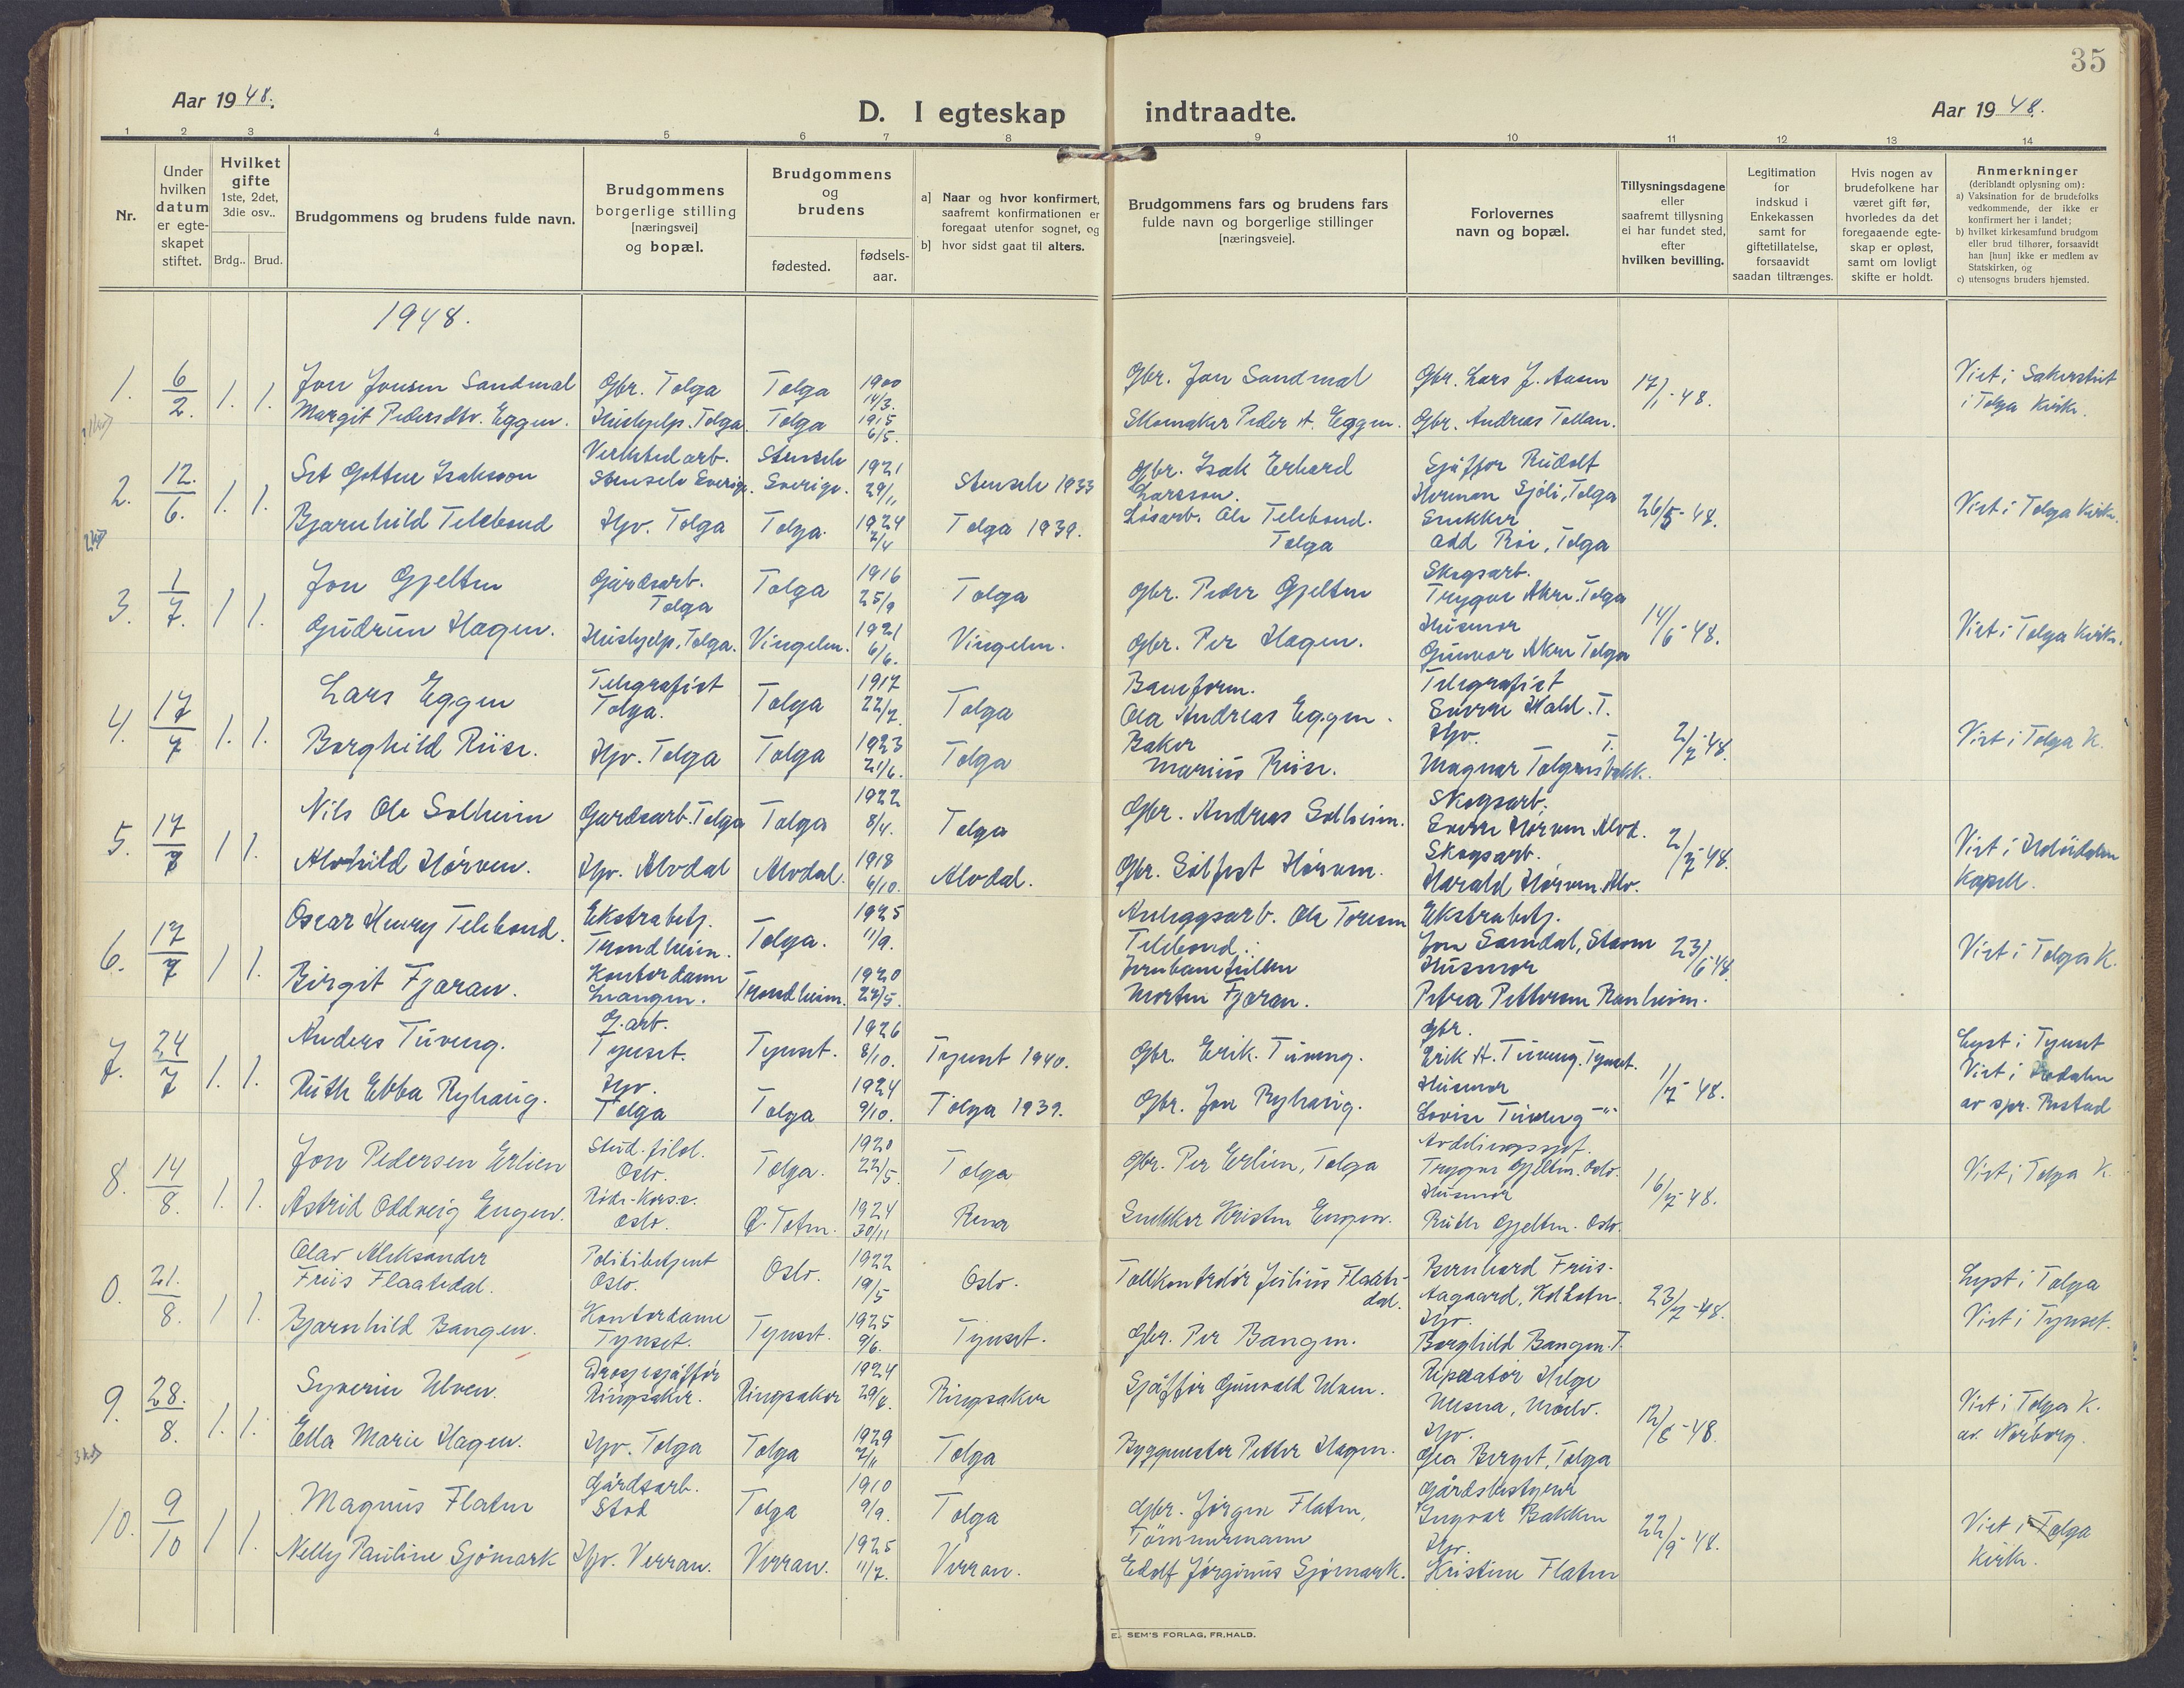 35
Aar 1948.
D. I egteskap indtraadte.
Aar 1948.
1 2 3 4 5 6 7 8 9 10 11 12 13 14
Nr.
Under hvilken datum er egte-skapet stiftet.
Hvilket gifte 1ste, 2det, 3die osv..
Brdg.. Brud.
Brudgommens og brudens fulde navn.
Brudgommens borgerlige stilling [næringsvei] og bopæl.
Brudgommens og brudens
fødested.
fødsels-aar.
a] Naar og hvor konfirmert, saafremt konfirmationen er foregaat utenfor sognet, og
b] hvor sidst gaat til alters.
Brudgommens fars og brudens fars fulde navn og borgerlige stillinger [næringsveie].
Forlovernes navn og bopæl.
Tillysningsdagene eller saafremt tillysning ei har fundet sted, efter hvilken bevilling.
Legitimation for indskud i Enkekassen samt for giftetillatelse, forsaavidt saadan tiltrænges.
Hvis nogen av brudefolkene har været gift før, hvorledes da det foregaaende egte-skap er opløst, samt om lovligt skifte er holdt.
Anmerkninger (deriblandt oplysning om):
a) Vaksination for de brudefolks vedkommende, der ikke er konfirmert her i landet;
b) hvilket kirkesamfund brudgom eller brud tilhører, forsaavidt han [hun] ikke er medlem av Statskirken, og
c) utensogns bruders hjemsted.
1948.
1. 6/2. 1. 1. Jon Jonsen Sandmal Gbr. Tolga Tolga 1900 14/3. Gbr. Jon Sandmal Gbr. Lars J. Aasen 17/1-48. Viet i Sakerstiet
Margit Pedersdtr. Eggen. Hushjelp. Tolga. Tolga 1915 6/5. Skomaker Peder A. Eggen. Gbr. Andreas Tollan. i Tolga Kirke.
2. 12./6. 1. 1. Set Gottne Isaksson Verksted arb. Stensele Sverige. Stensele Sverige. 1921 29/11 Stensele 1933 Gbr. Isak Erhard Larsson. Sjåffør Rudolf Herman Sjøli, Tolga 26/5-48. Viet i Tolga Kirke.
Bjarnhild Telebond Hjv. Tolga Tolga. 1924 2/4 Tolga 1939. Løsarb. Ole Telebond. Tolga Snekker Odd Røe, Tolga
3. 1/7. 1 1. Jon Gjelten Gårdsarb. Tolga Tolga 1916 25/9 Tolga Gbr. Peder Gjelten Skogsarb. Trygve Akre. Tolga 14/6-48. Viet i Tolga Kirke.
Gudrun Hagen. Hushjelp. Tolga. Vingelen. 1921 6/6. Vingelen. Gbr. Per Hagen. Husmor Gunvor Akre Tolga
4. 17/7 1. 1. Lars Eggen Telegrafist Tolga. Tolga 1917 22/7. Tolga Baneform. Ola Andreas Eggen. Telegrafist Sverre Hald. T. 2/7-48. Viet i Tolga K.
Borghild Riise. Hjv. Tolga Tolga 1923 21/6. Tolga Baker Marius Riise. Hjv. T. Magnar Tolgensbakk.
5. 17/7 1 1. Nils Ole Solheim Gardsarb. Tolga Tolga 1922 8/4. Tolga Gbr. Andreas Solheim. Skogsarb. Sverre Hørven Alvd. 2/7-48. Viet i Holøidalen
Alvhild Hørven. Hjv. Alvdal Alvdal. 1918 6/10. Alvdal. Gbr. Solfest Hørven. Skogsarb. Harald Hørven. Alv. Kapell.
6. 17/7 1 1. Oscar Henry Telebond. Ekstrabetj. Trondheim. Tolga. 1925 11/9. Anleggsarb. Ole Toresen Telebond. Ekstrabetj. Jon Samdal, Støren 23/6-48 Viet i Tolga K.
Birgit Fjaran. Kontordame Trondheim. 1920 Jernbanefullm Morten Fjaran. Husmor Petra Pettersen Ranheim.
7. 24/7 1. 1. Anders Tuveng. G.arb. Tynset. Tynset. 1926 8/10. Tynset 1940. Gbr. Erik Tuveng. Gbr. Erik H. Tuveng. Tynset. 1/7-48. Lyst i Tynset
Ruth Ebba Ryhaug. Hjv. Tolga Tolga 1924 9/10. Tolga 1939. Gbr. Jon Ryhaug. Husmor Lovise Tuveng -"- Viet i
8. 14/8. 1. 1. Jon Pedersen Erlien Stud. filol. Oslo. Tolga. 1920 22/5. Tolga Gbr. Per Erlien, Tolga Avdelingssjef. Trygve Gjelten. Oslo. 16/7-48. Viet i Tolga K.
Astrid Oddveig Engen. Oslo. Ø. Toten. 1924 30/11 Rena Snekker Kristen Engen. Husmor Ruth Gjelten. Oslo.
0. 21./8. 1 1. Olav Aleksander Friis Flaatedal. Politibetjent Oslo. Oslo. 1922 19/5 Oslo. Tollkontrolør Julius Flaate-dal. Bernhard Friis-Aagaard, 23/7-48. Lyst i Tolga
Bjarnhild Bangen. Kontordame Tynset. Tynset. 1925 9/6. Tynset. Gbr. Per Bangen. Hjv. Borghild Bangen. T. Viet i Tynset.
9. 28./8. 1. 1. Syverin Ulven. Drosjesjåffør Ringsaker. Ringsaker 1924 29/6. Ringsaker Sjåffør Gunvald Ulven. Reparatør Helge Mesna, 12/8-48. Viet i Tolga K.
Ella Marie Hagen. Hjv. Tolga Tolga 1929 Tolga Byggmester Petter Hagen. Hjv. Gea Berget, Tolga av. Norborg.
10. 9/10 1 1. Magnus Flaten Gårdsarb. Stod Tolga 1910 9/9. Tolga Gbr. Jørgen Flaten, Gårdsbestyrer Ingvar Bakken 22/9-48. Viet i Tolga
Nelly Pauline Sjømark Hjv. Verran. Verran. 1925 11/7. Verran. Tømmermann Edolf Jørginus Sjømark. Hjv. Kristine Flaten Kirke.
E. SEM'S FORLAG, FR.HALD.